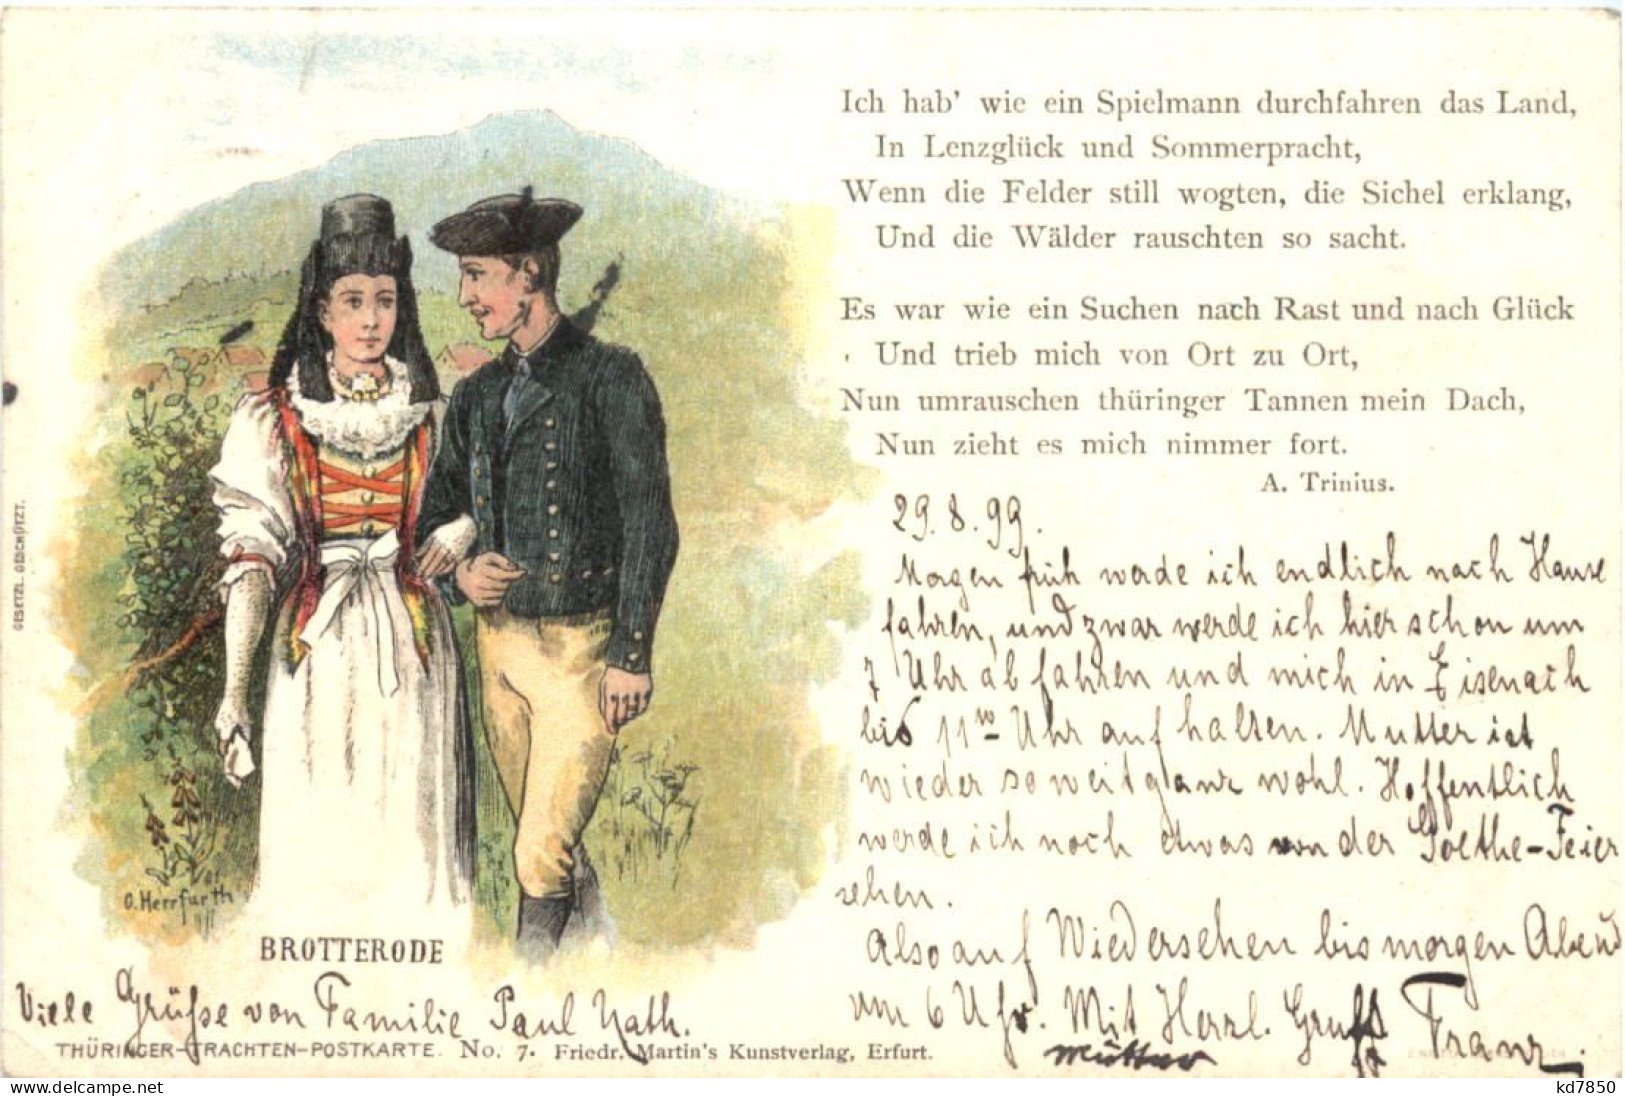 Ich hab' wie ein Spielmann durchfahren das Land,
In Lenzglück und Sommerpracht,
Wenn die Felder still wogten, die Sichel erklang,
Und die Wälder rauschten so sacht.
Es war wie ein Suchen nach Rast und nach Glück
Und trieb mich von Ort zu Ort,
Nun umrauschen thüringer Tannen mein Dach,
Nun zieht es mich nimmer fort.
A. Trinius.
29.8.99.
Morgen früh werde ich endlich nach Hause
fahren, und zwar werde ich hier schon um
7 Uhr abfahren und mich in Eisenach
bis 11 Uhr aufhalten. Mutter ist
wieder soweit ganz wohl. Hoffentlich
werde ich noch etwas von der Goethe-Feier
sehen.
Also auf Wiedersehen bis morgen Abend
um 6 Uhr. Mit Herzl. Gruß Franz.
Mutter
GESETZL. GESCHÜTZT.
O. Herrfurth
BROTTERODE
Viele Grüße von Familie Paul Nath.
THÜRINGER-TRACHTEN-POSTKARTE. No. 7. Friedr. Martin's Kunstverlag, Erfurt.
https://www.delcampe.net
kd7850